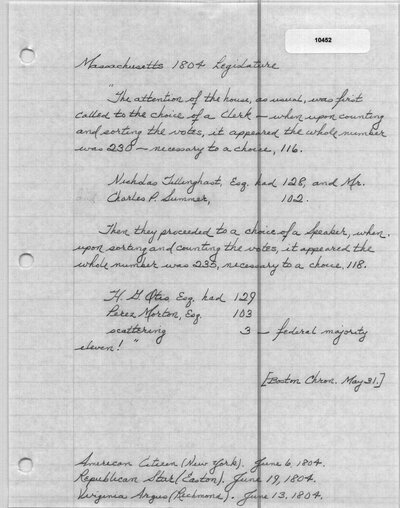 10452
Massachusetts 1804 Legislature
"The attention of the house, as usual, was first
called to the choice of a Clerk — when upon counting
and sorting the votes, it appeared the whole number
was 230 — necessary to a choice, 116.
Nicholas Tillinghast, Esq. had 128, and Mr.
Charles P. Sumner, 102.
Then they proceeded to a choice of a Speaker, when
upon sorting and counting the votes, it appeared the
whole number was 235, necessary to a choice, 118.
H. G. Otis, Esq. had 129
Perez Morton, Esq. 103
scattering 3 — federal majority
eleven!"
[Boston Chron. May 31.]
American Citizen (New York). June 6, 1804.
Republican Star (Easton). June 19, 1804.
Virginia Argus (Richmond). June 13, 1804.